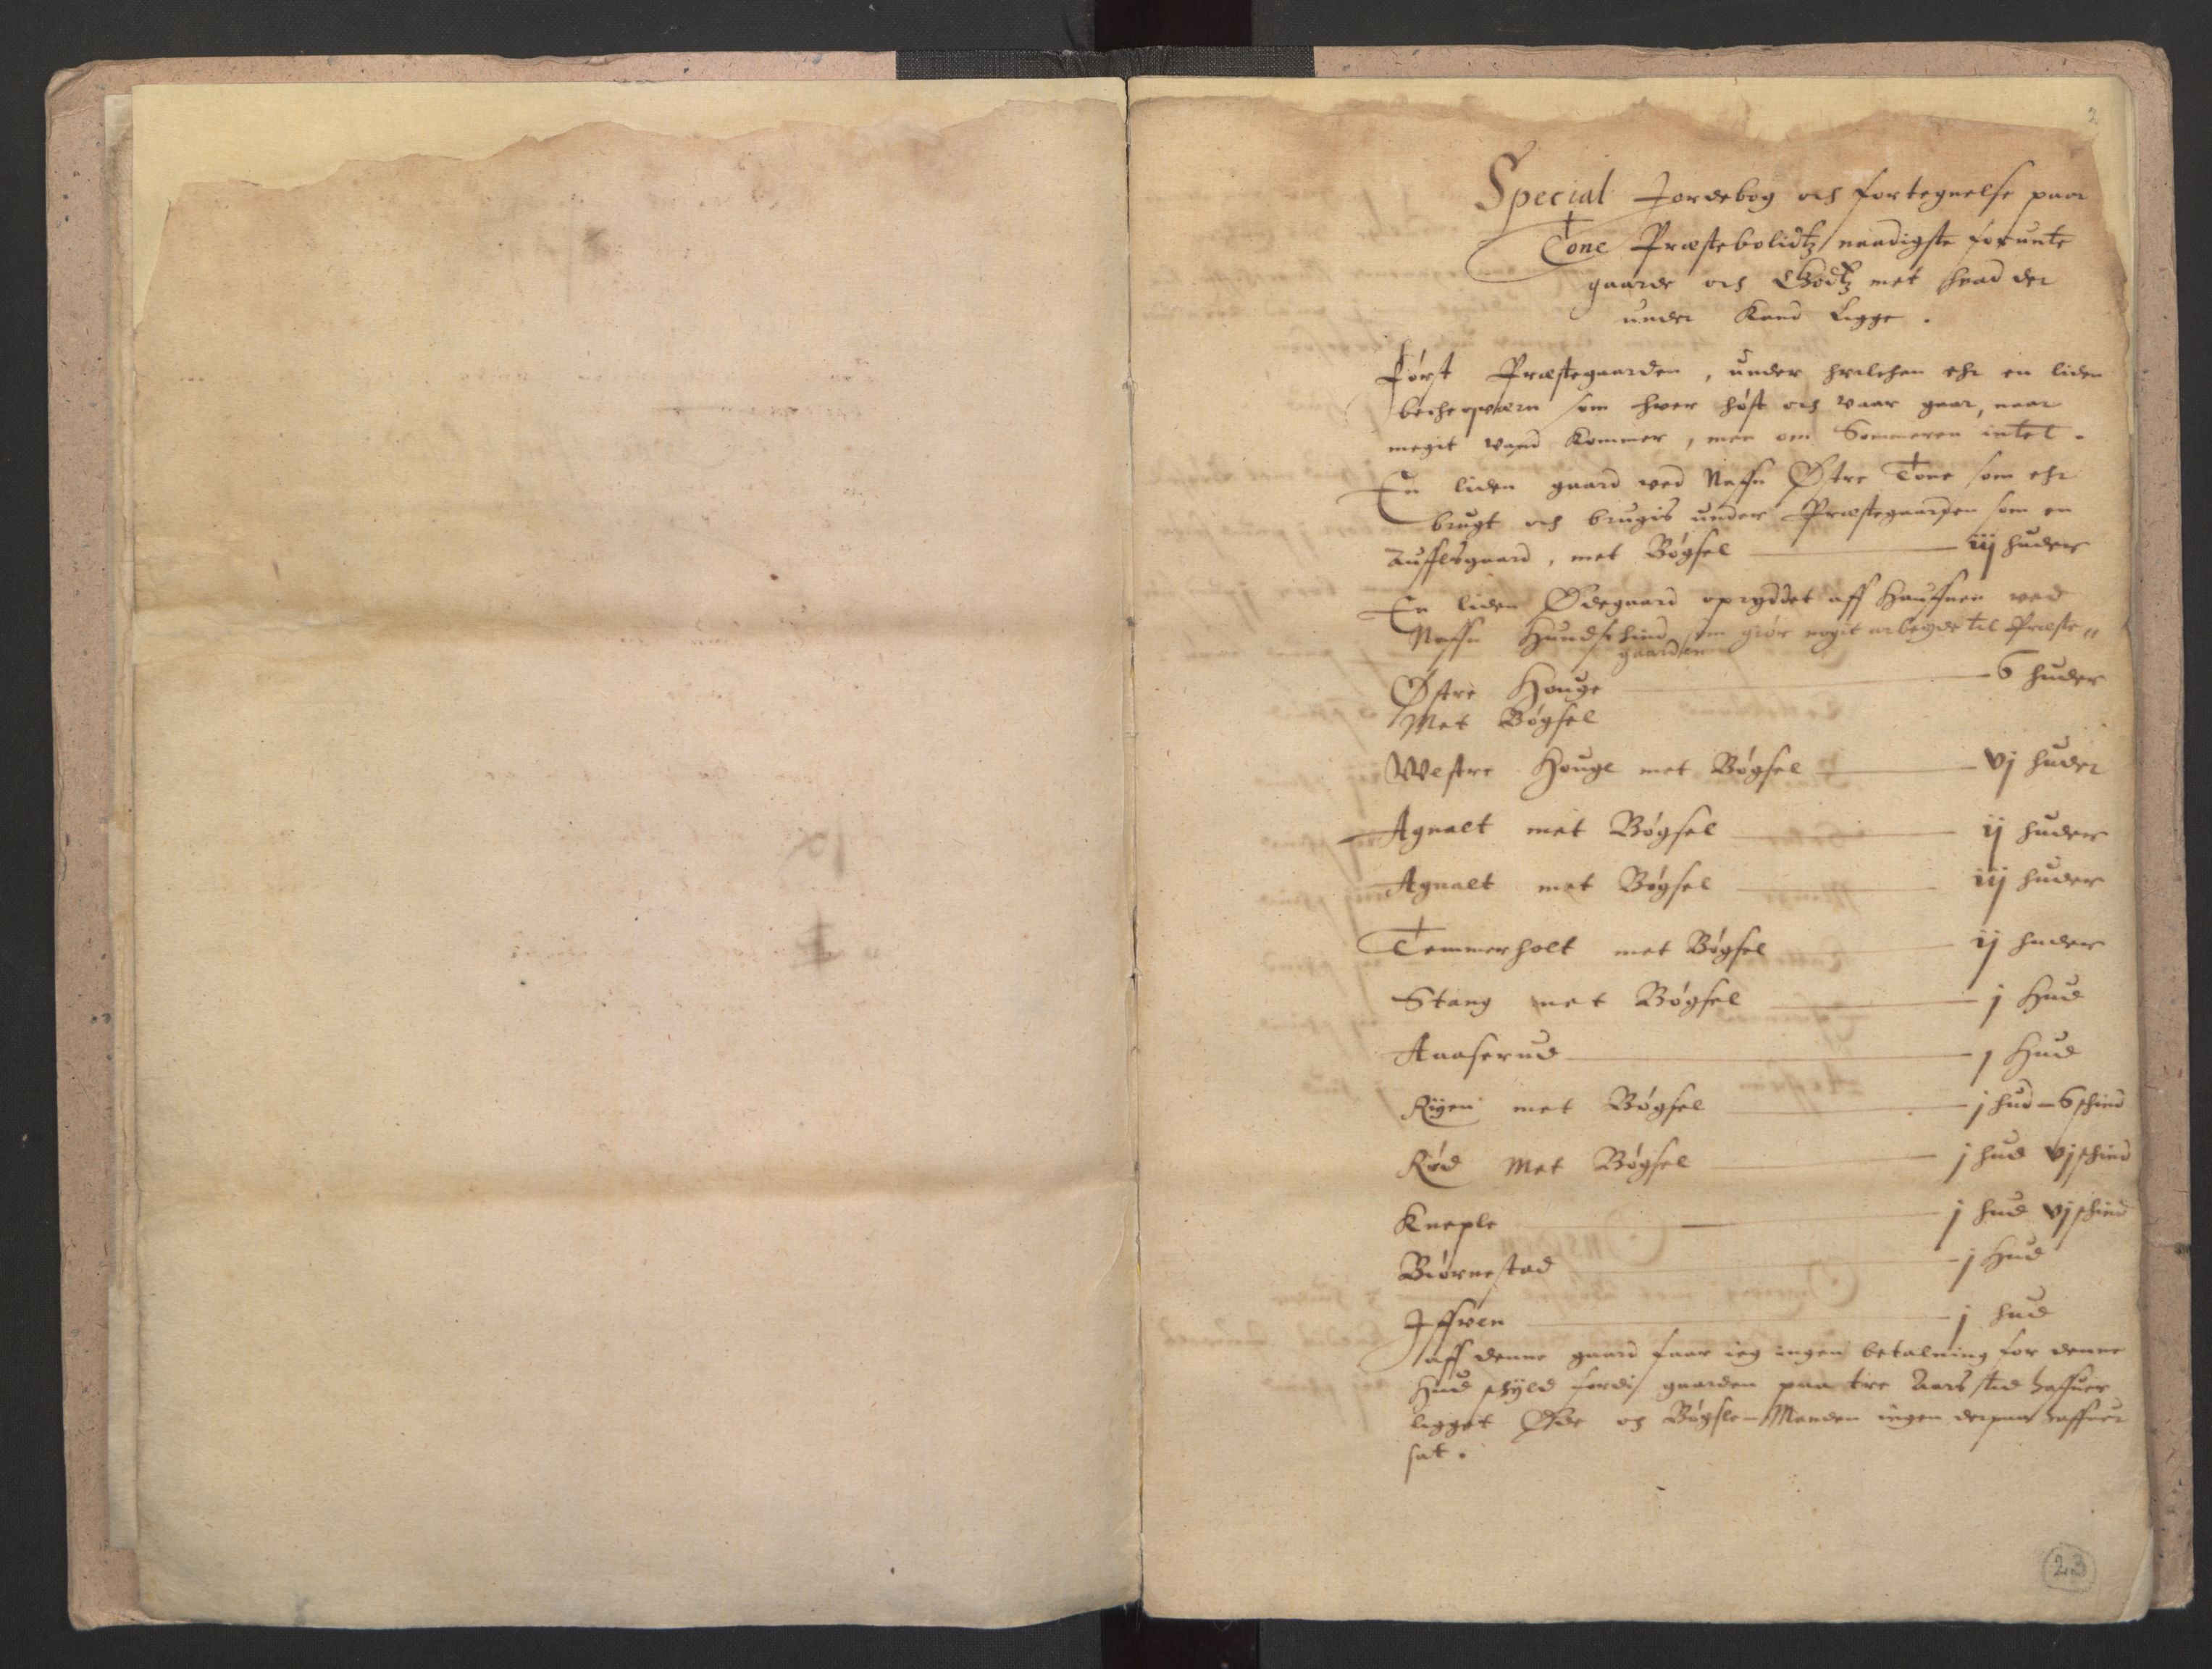 2
Special Jordebog och fortegnelse paa
Tone Præstebolidtz naadigste forunte
gaarde och Godtz met hvad der
under Kand Ligge.
Först Præstegaarden, under hvilchen ehr en liden
beche qværn som hver høst och vaar gaar, naar
megit vand Kommer, men om Sommeren intet.
En liden gaard ved Nafn Østre Tone som ehr
brugt och brugis under Præstegaarden som en
Auflsgaard, met Bøgsel — iij huder
En liden Ødegaard opryddet aff Hauffnen ved
Nafn Hundschind som giør nogit arbeyde til Præste"
gaarden
Østre Houge — 6 huder
Met Bøgsel
Westre Houge met Bøgsel — vj huder
Agnalt met Bøgsel — ij huder
Agnalt met Bøgsel — iij huder
Temmerholt met Bøgsel — ij huder
Stang met Bøgsel — j Hud
Aaaserud — j Hud
Rÿen met Bøgsel — j hud – 6 schind
Rød Met Bøgsel — j hud vj schind
Kneple — j hud vj schind
Biørnestad — j Hud
Jffwen — j hud
aff denne gaard faar ieg ingen betalning for denne
Hud schyld fordi gaarden paa tre Aars tid haffuer
ligget Øde och Bøgsle-Manden ingen derpaa haffuer
sat.
23